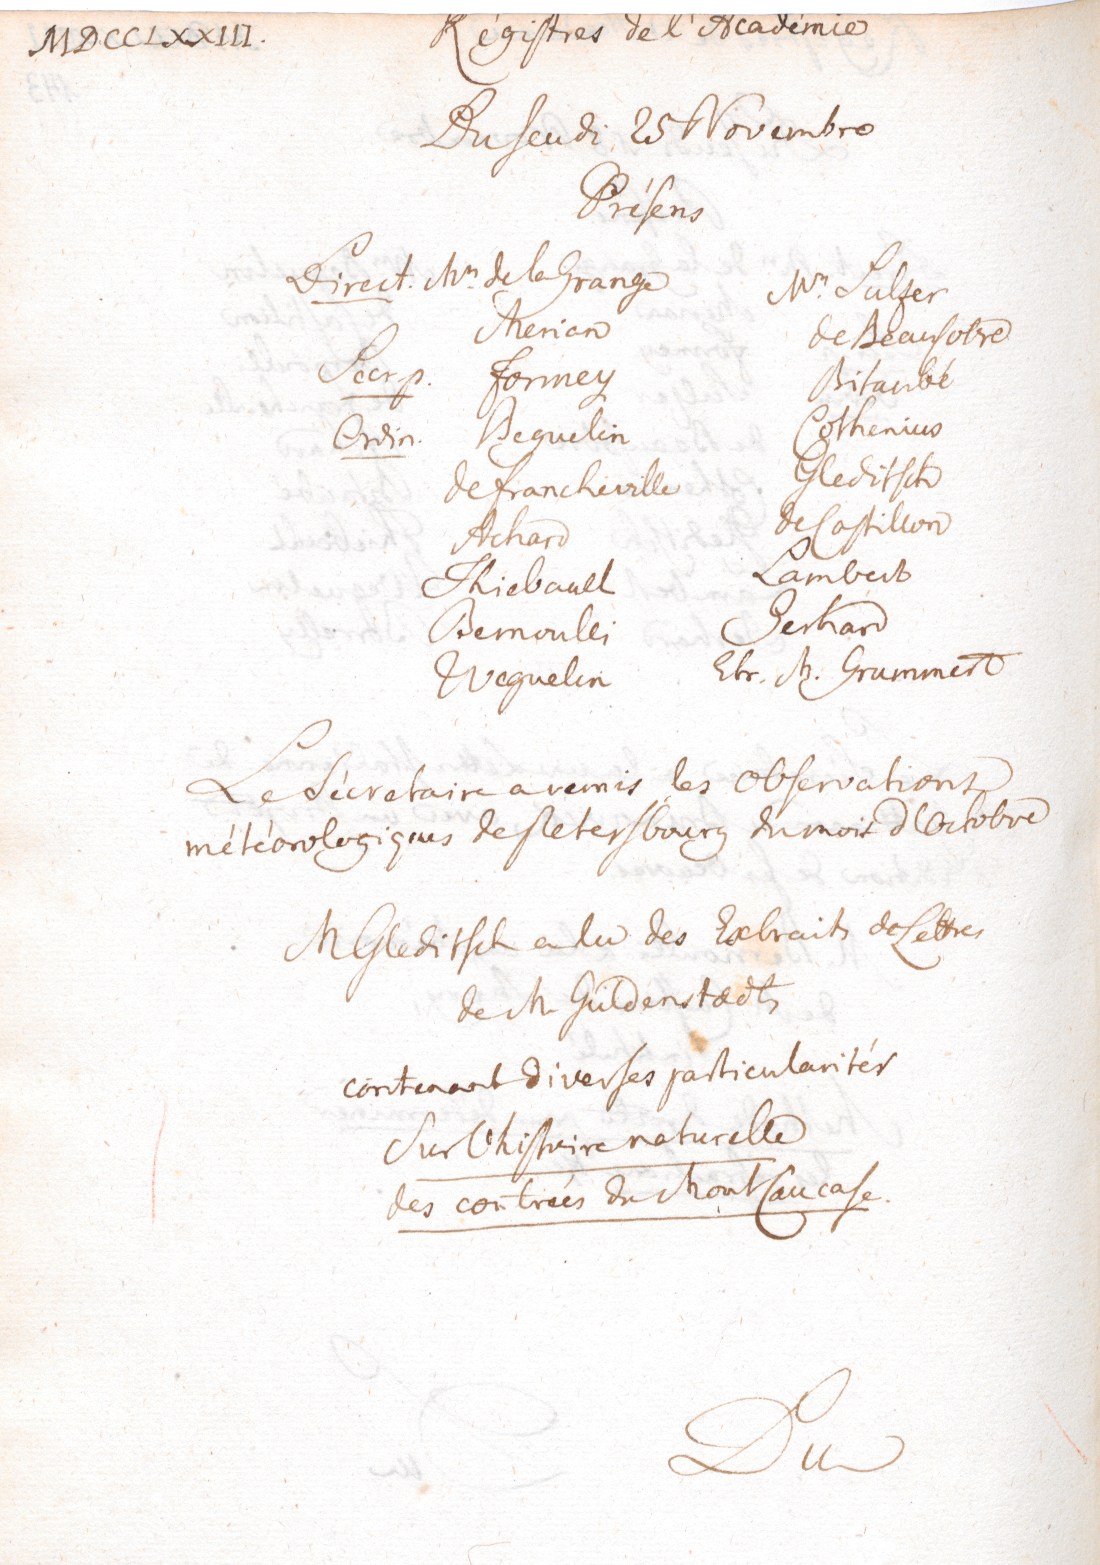 MDCCLXXIII.
Régistres de l'Académie
Du Jeudi 25 Novembre
Présens
Direct. Mrs. de la Grange
Merian
Secr. p. Formey
Ordin. Beguelin
de Francheville
Achard
Thiebault
Bernoulli
Weguelin
Mrs. Sulzer
de Beausobre
Bitaubé
Cothenius
Gleditsch
de Castillon
Lambert
Gerhard
Etr. M. Grummert
Le Sécretaire a remis les Observations
météorologiques de Petersbourg du mois d'Octobre
M Gleditsch a lu des Extraits de Lettres
de M Güldenstædt,
contenant diverses particularités
Sur l'histoire naturelle
des contrées du Mont Caucase.
Du